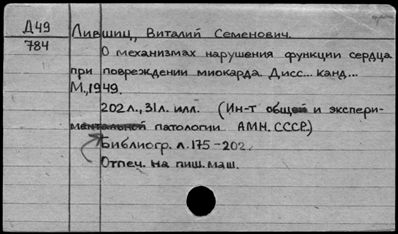 Д49
784
Лившиц, Виталий Семенович.
О механизмах нарушения функции сердца
при повреждении миокарда. Дисс... канд...
М., 1949.
202 л., 31 л. илл. (Ин-т общей и экспери-
ментальной патологии АМН. СССР.)
Библиогр. л. 175-202.
Отпеч. на пиш. маш.